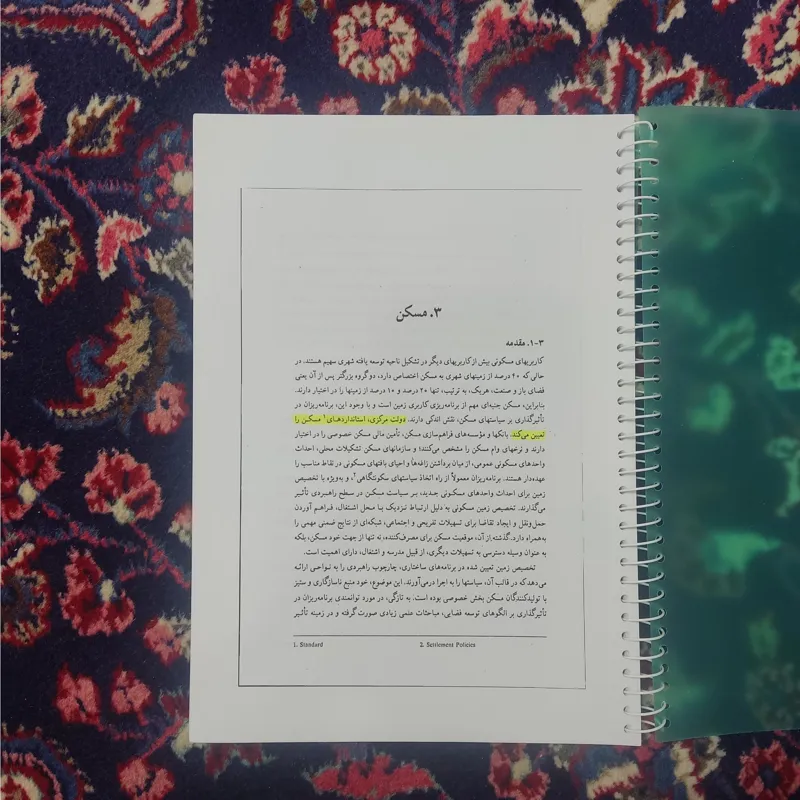 ۳. مسکن
۳-۱. مقدمه
کاربریهای مسکونی بیش از کاربریهای دیگر در تشکیل ناحیه توسعه یافته شهری سهیم هستند. در
حالی که ۴۰ درصد از زمینهای شهری به مسکن اختصاص دارد، دو گروه بزرگتر پس از آن یعنی
فضای باز و صنعت، هریک، به ترتیب، تنها ۲۰ درصد و ۱۰ درصد از زمینها را در اختیار دارند.
بنابراین، مسکن جنبه‌ای مهم از برنامه‌ریزی کاربری زمین است و با وجود این، برنامه‌ریزان در
تأثیرگذاری بر سیاستهای مسکن، نقش اندکی دارند. دولت مرکزی، استانداردهای۱ مسکن را
تعیین می‌کند. بانکها و مؤسسه‌های فراهم‌سازی مسکن، تأمین مالی مسکن خصوصی را در اختیار
دارند و نرخهای وام مسکن را مشخص می‌کنند؛ و سازمانهای مسکن تشکیلات محلی، احداث
واحدهای مسکونی عمومی، از میان برداشتن زاغه‌ها و احیای بافتهای مسکونی در نقاط مناسب را
عهده‌دار هستند. برنامه‌ریزان معمولاً از راه اتخاذ سیاستهای سکونتگاهی۲، و به‌ویژه با تخصیص
زمین برای احداث واحدهای مسکونی جدید، بر سیاست مسکن در سطح راهبردی تأثیر
می‌گذارند. تخصیص زمین مسکونی به دلیل ارتباط نزدیک با محل اشتغال، فراهم آوردن
حمل‌ونقل و ایجاد تقاضا برای تسهیلات تفریحی و اجتماعی، شبکه‌ای از نتایج ضمنی مهمی را
به‌همراه دارد. گذشته از آن، موقعیت مسکن برای مصرف‌کننده، نه تنها از جهت خود مسکن، بلکه
به عنوان وسیله دسترسی به تسهیلات دیگری، از قبیل مدرسه و اشتغال، دارای اهمیت است.
تخصیص زمین تعیین شده در برنامه‌های ساختاری، چارچوب راهبردی را به نواحی ارائه
می‌دهد که در قالب آن، سیاستها را به اجرا درمی‌آورند. این موضوع، خود منبع ناسازگاری و ستیز
با تولیدکنندگان مسکن بخش خصوصی بوده است. به تازگی، در مورد توانمندی برنامه‌ریزان در
تأثیرگذاری بر الگوهای توسعه فضایی، مباحثات علمی زیادی صورت گرفته و در زمینه تأثیر
1. Standard
2. Settlement Policies